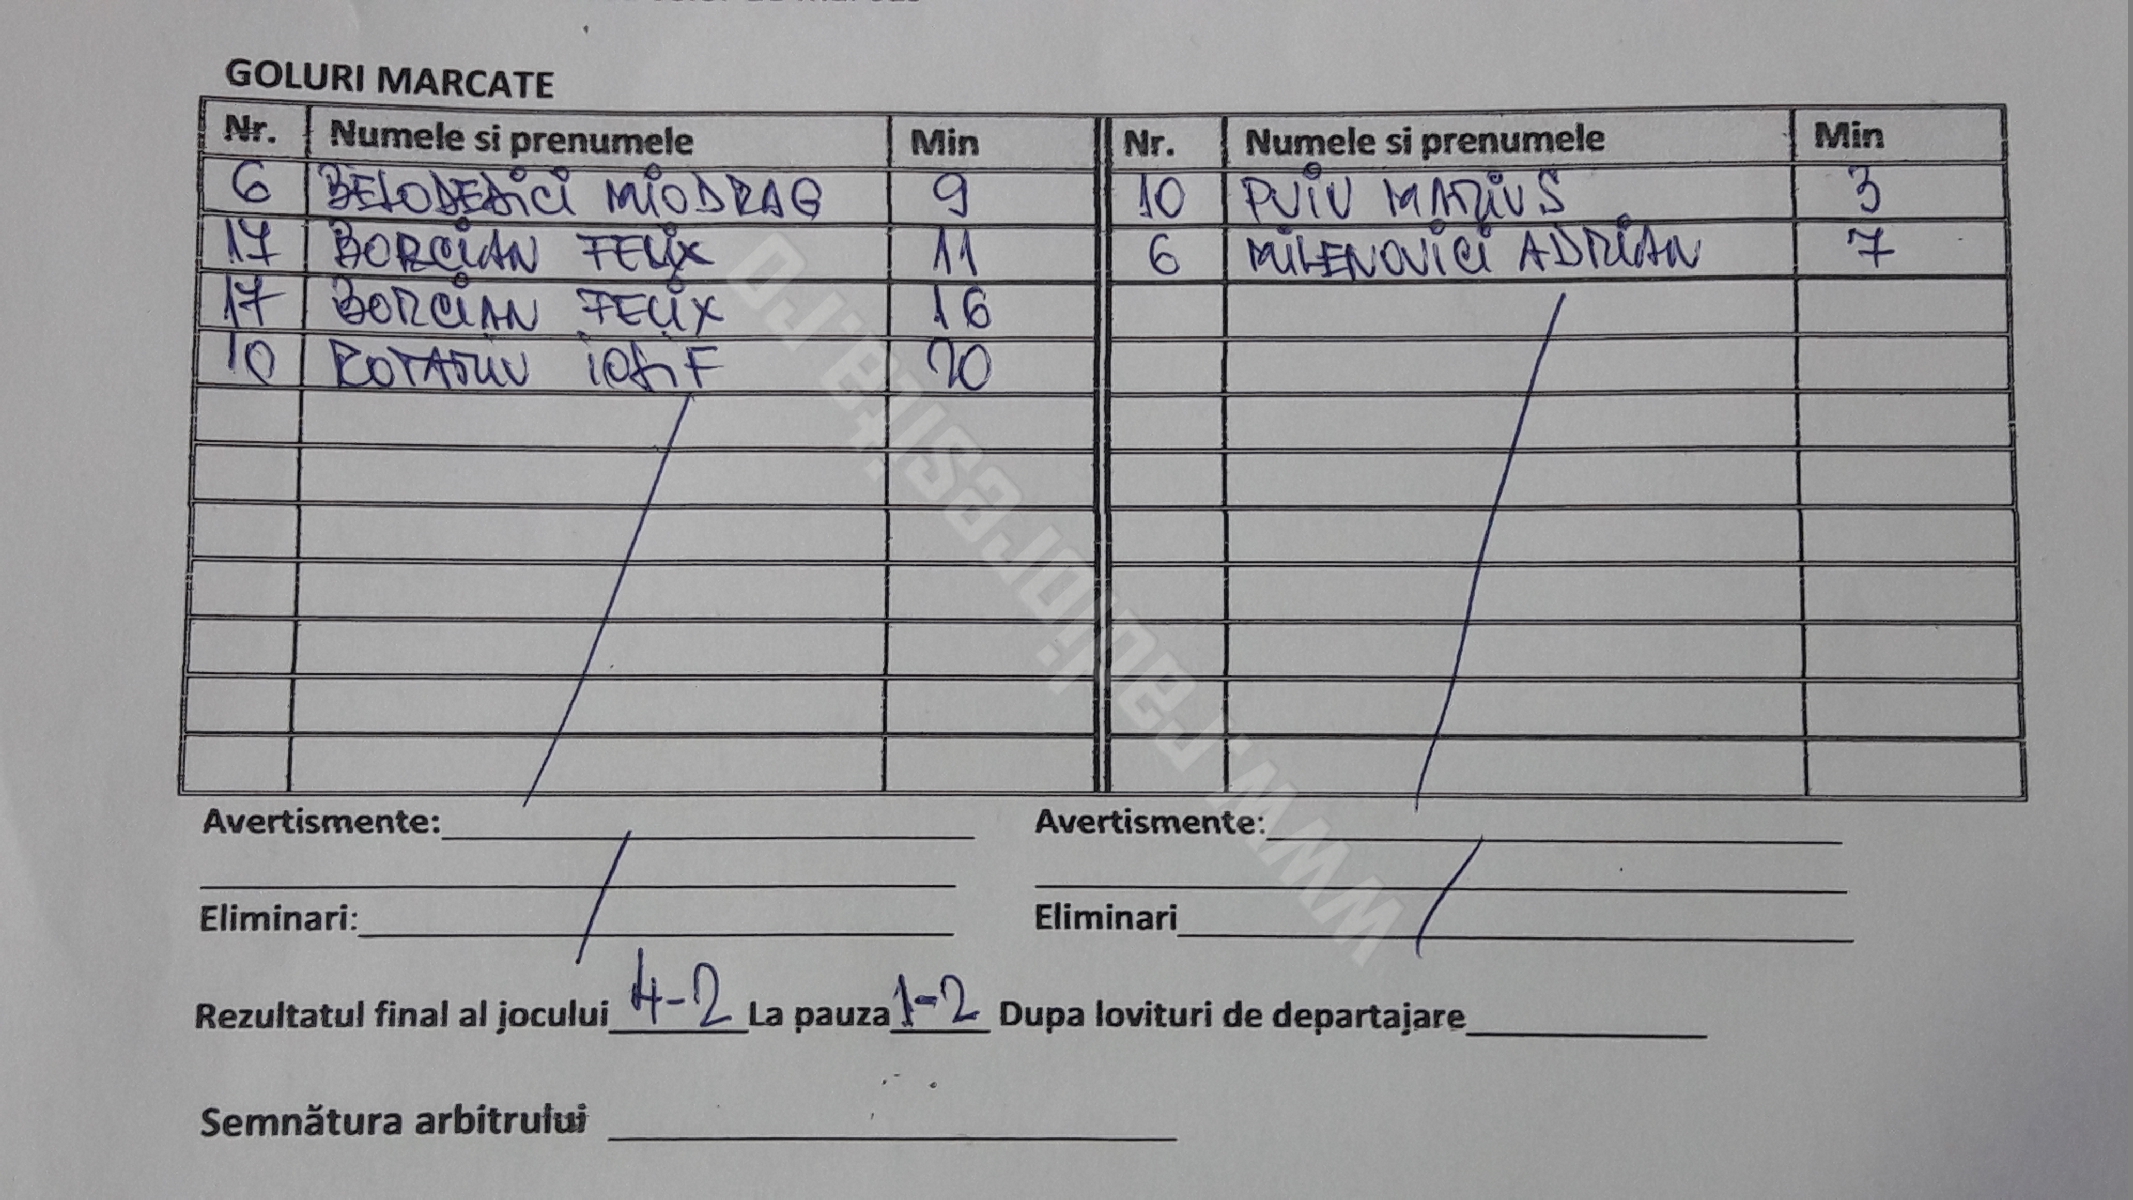 GOLURI MARCATE
Nr. Numele si prenumele Min Nr. Numele si prenumele Min
6 BELODEDICI MIODRAG 9 10 PUIU MARIUS 3
17 BORCIAN FELIX 11 6 MILENOVICI ADRIAN 7
17 BORCIAN FELIX 16
10 ROTARIU IOSIF 20
Avertismente: Avertismente:
Eliminari: Eliminari
Rezultatul final al jocului 4-2 La pauza 1-2 Dupa lovituri de departajare
Semnătura arbitrului
www.radioresita.ro